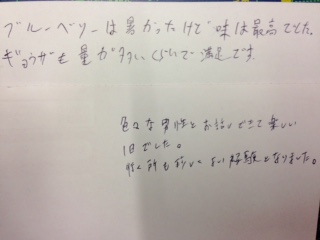 ブルーベリーは暑かったけど味は最高でした。
ギョウザも量が多いくらいで満足です。
色々な男性とお話しできて楽しい
1日でした。
り良い経験となりました。